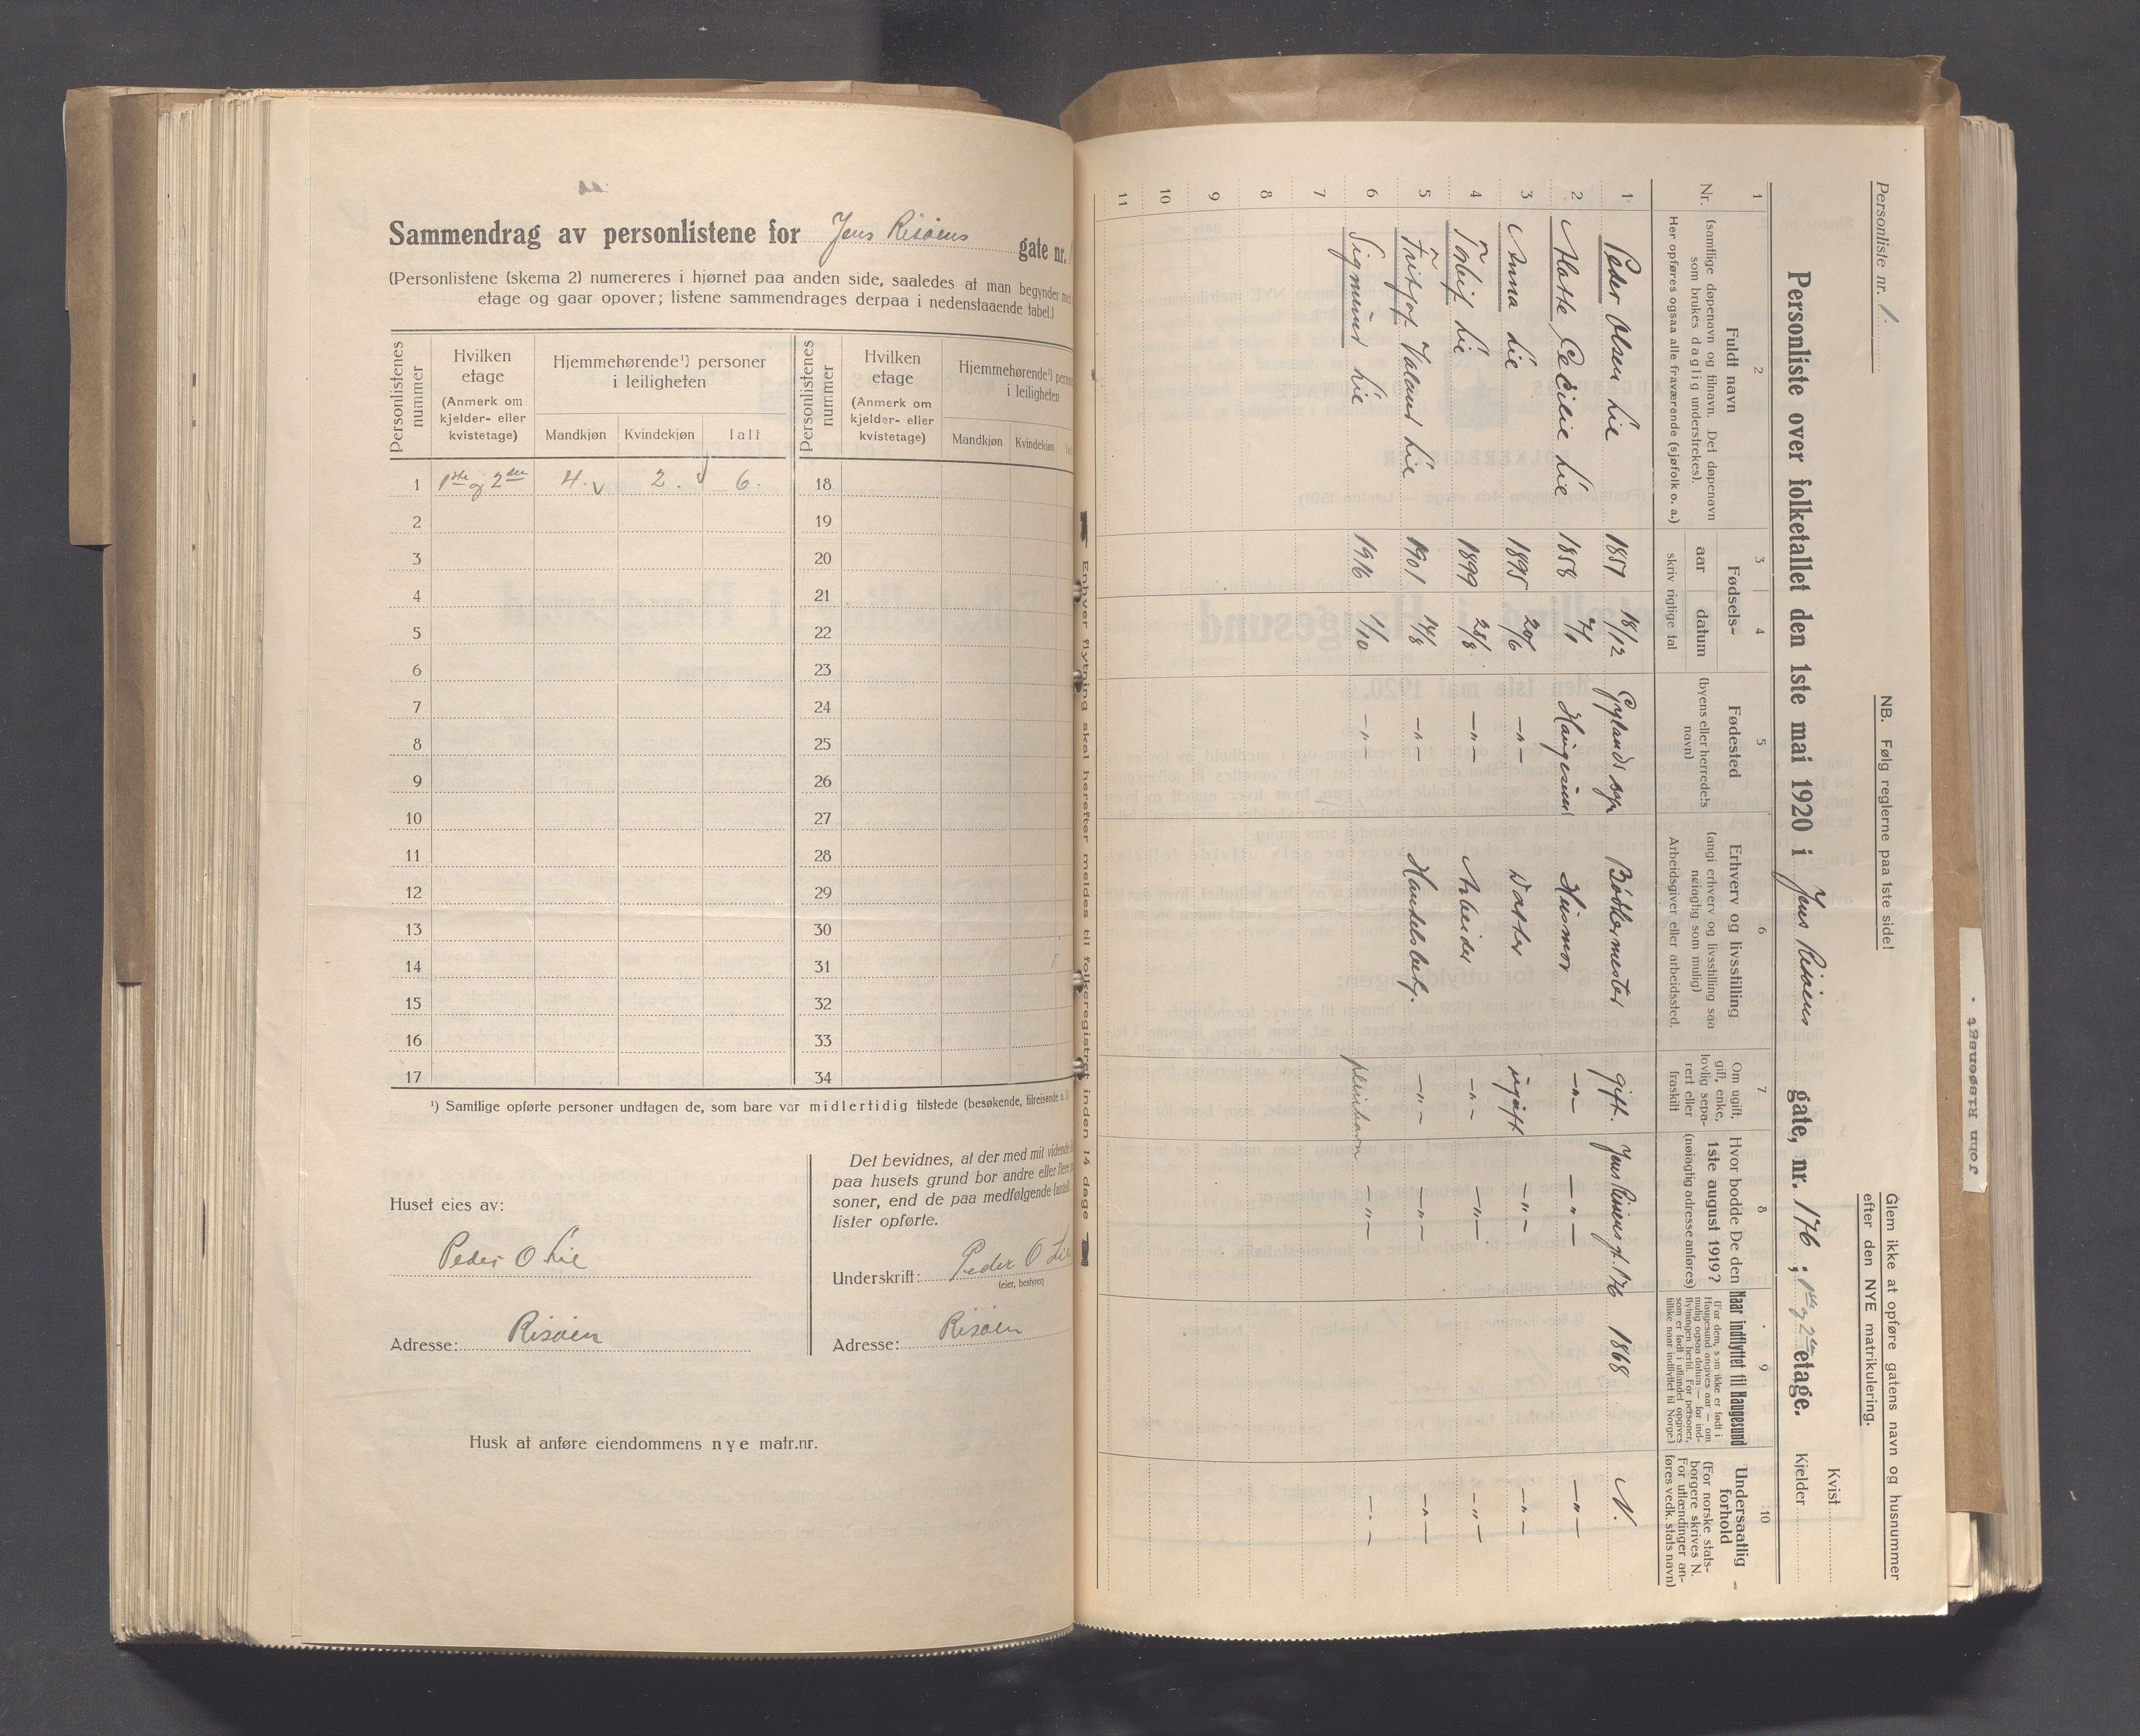 Sammendrag av personlistene for Jens Risøens gate nr.
(Personlistene (skema 2) numereres i hjørnet paa anden side, saaledes at man begynder med
etage og gaar opover; listene sammendrages derpaa i nedenstaaende tabel.)
Personlistenes nummer
Hvilken etage (Anmerk om kjelder- eller kvistetage)
Hjemmehørende¹) personer i leiligheten
Mandkjøn Kvindekjøn Ialt
Personlistenes nummer
Hvilken etage (Anmerk om kjelder- eller kvistetage)
Hjemmehørende¹) i leiligheten
Mandkjøn Kvindekjøn
1 1ste og 2den 4. 2. 6. 18
2 19
3 20
4 21
5 22
6 23
7 24
8 25
9 26
10 27
11 28
12 29
13 30
14 31
15 32
16 33
17 34
¹) Samtlige opførte personer undtagen de, som bare var midlertidig tilstede (besøkende, tilreisende o. l.)
Huset eies av:
Peder O Lie
Adresse: Risøen
Det bevidnes, at der med mit vidende
paa husets grund bor andre eller flere
soner, end de paa medfølgende
lister opførte.
Underskrift: Peder O Lie
(eier, bestyrer)
Adresse: Risøen
Husk at anføre eiendommens nye matr.nr.
Personliste nr. 1.
NB. Følg reglerne paa 1ste side!
Glem ikke at opføre gatens navn og husnummer
efter den NYE matrikulering.
Kvist
Personliste over folketallet den 1ste mai 1920 i Jens Risøens gate, nr. 176; 1ste og 2den etage.
Kjelder
1 2 3 4 5 6 7 8 9 10
Nr.
Fuldt navn
(samtlige døpenavn og tilnavn. Det døpenavn
som brukes daglig understrekes).
Her opføres ogsaa alle fraværende (sjøfolk o. a.)
Fødsels-
aar datum
skriv rigtige tal
Fødested
(byens eller herredets
navn)
Erhverv og livsstilling
(angi erhverv og livsstilling saa
nøiagtig som mulig)
Arbeidsgiver eller arbeidssted.
Om ugift,
gift, enke,
lovlig sepa-
rert eller
fraskilt
Hvor bodde De den
1ste august 1919?
(nøiagtig adresse anføres)
Naar indflyttet til Haugesund
(For dem, som ikke er født i
Haugesund anføres aar — om
mulig ogsaa datum — for ind-
flytningen hertil. For personer,
som er født i utlandet opgives
tillike naar indflyttet til Norge.)
Undersaatlig
forhold
(For norske stats-
borgere skrives N.
For utlændinger an-
føres vedk. stats navn)
1 Peder Olsen Lie 1857 18/12 Gylands sogn Bødkermester gift. Jens Risøens gt. 176 1868 N.
2 Marthe Cecilie Lie 1858 7/1 Haugesund Husmor —"— —"— —"—
3 Anna Lie 1895 20/6 —"— Datter ugift —"— —"—
4 Tobif Lie 1899 28/8 —"— Arbeider —"— —"— —"—
5 Fritjof Valand Lie 1901 14/8 —"— Handelsbetj. —"— —"— —"—
6 Sigmund Lie 1916 1/10 —"— pleiebarn —"— —"—
7
8
9
10
11
Enhver flytning skal herefter meldes til folkeregistret inden 14 dage
John Risøensgt.